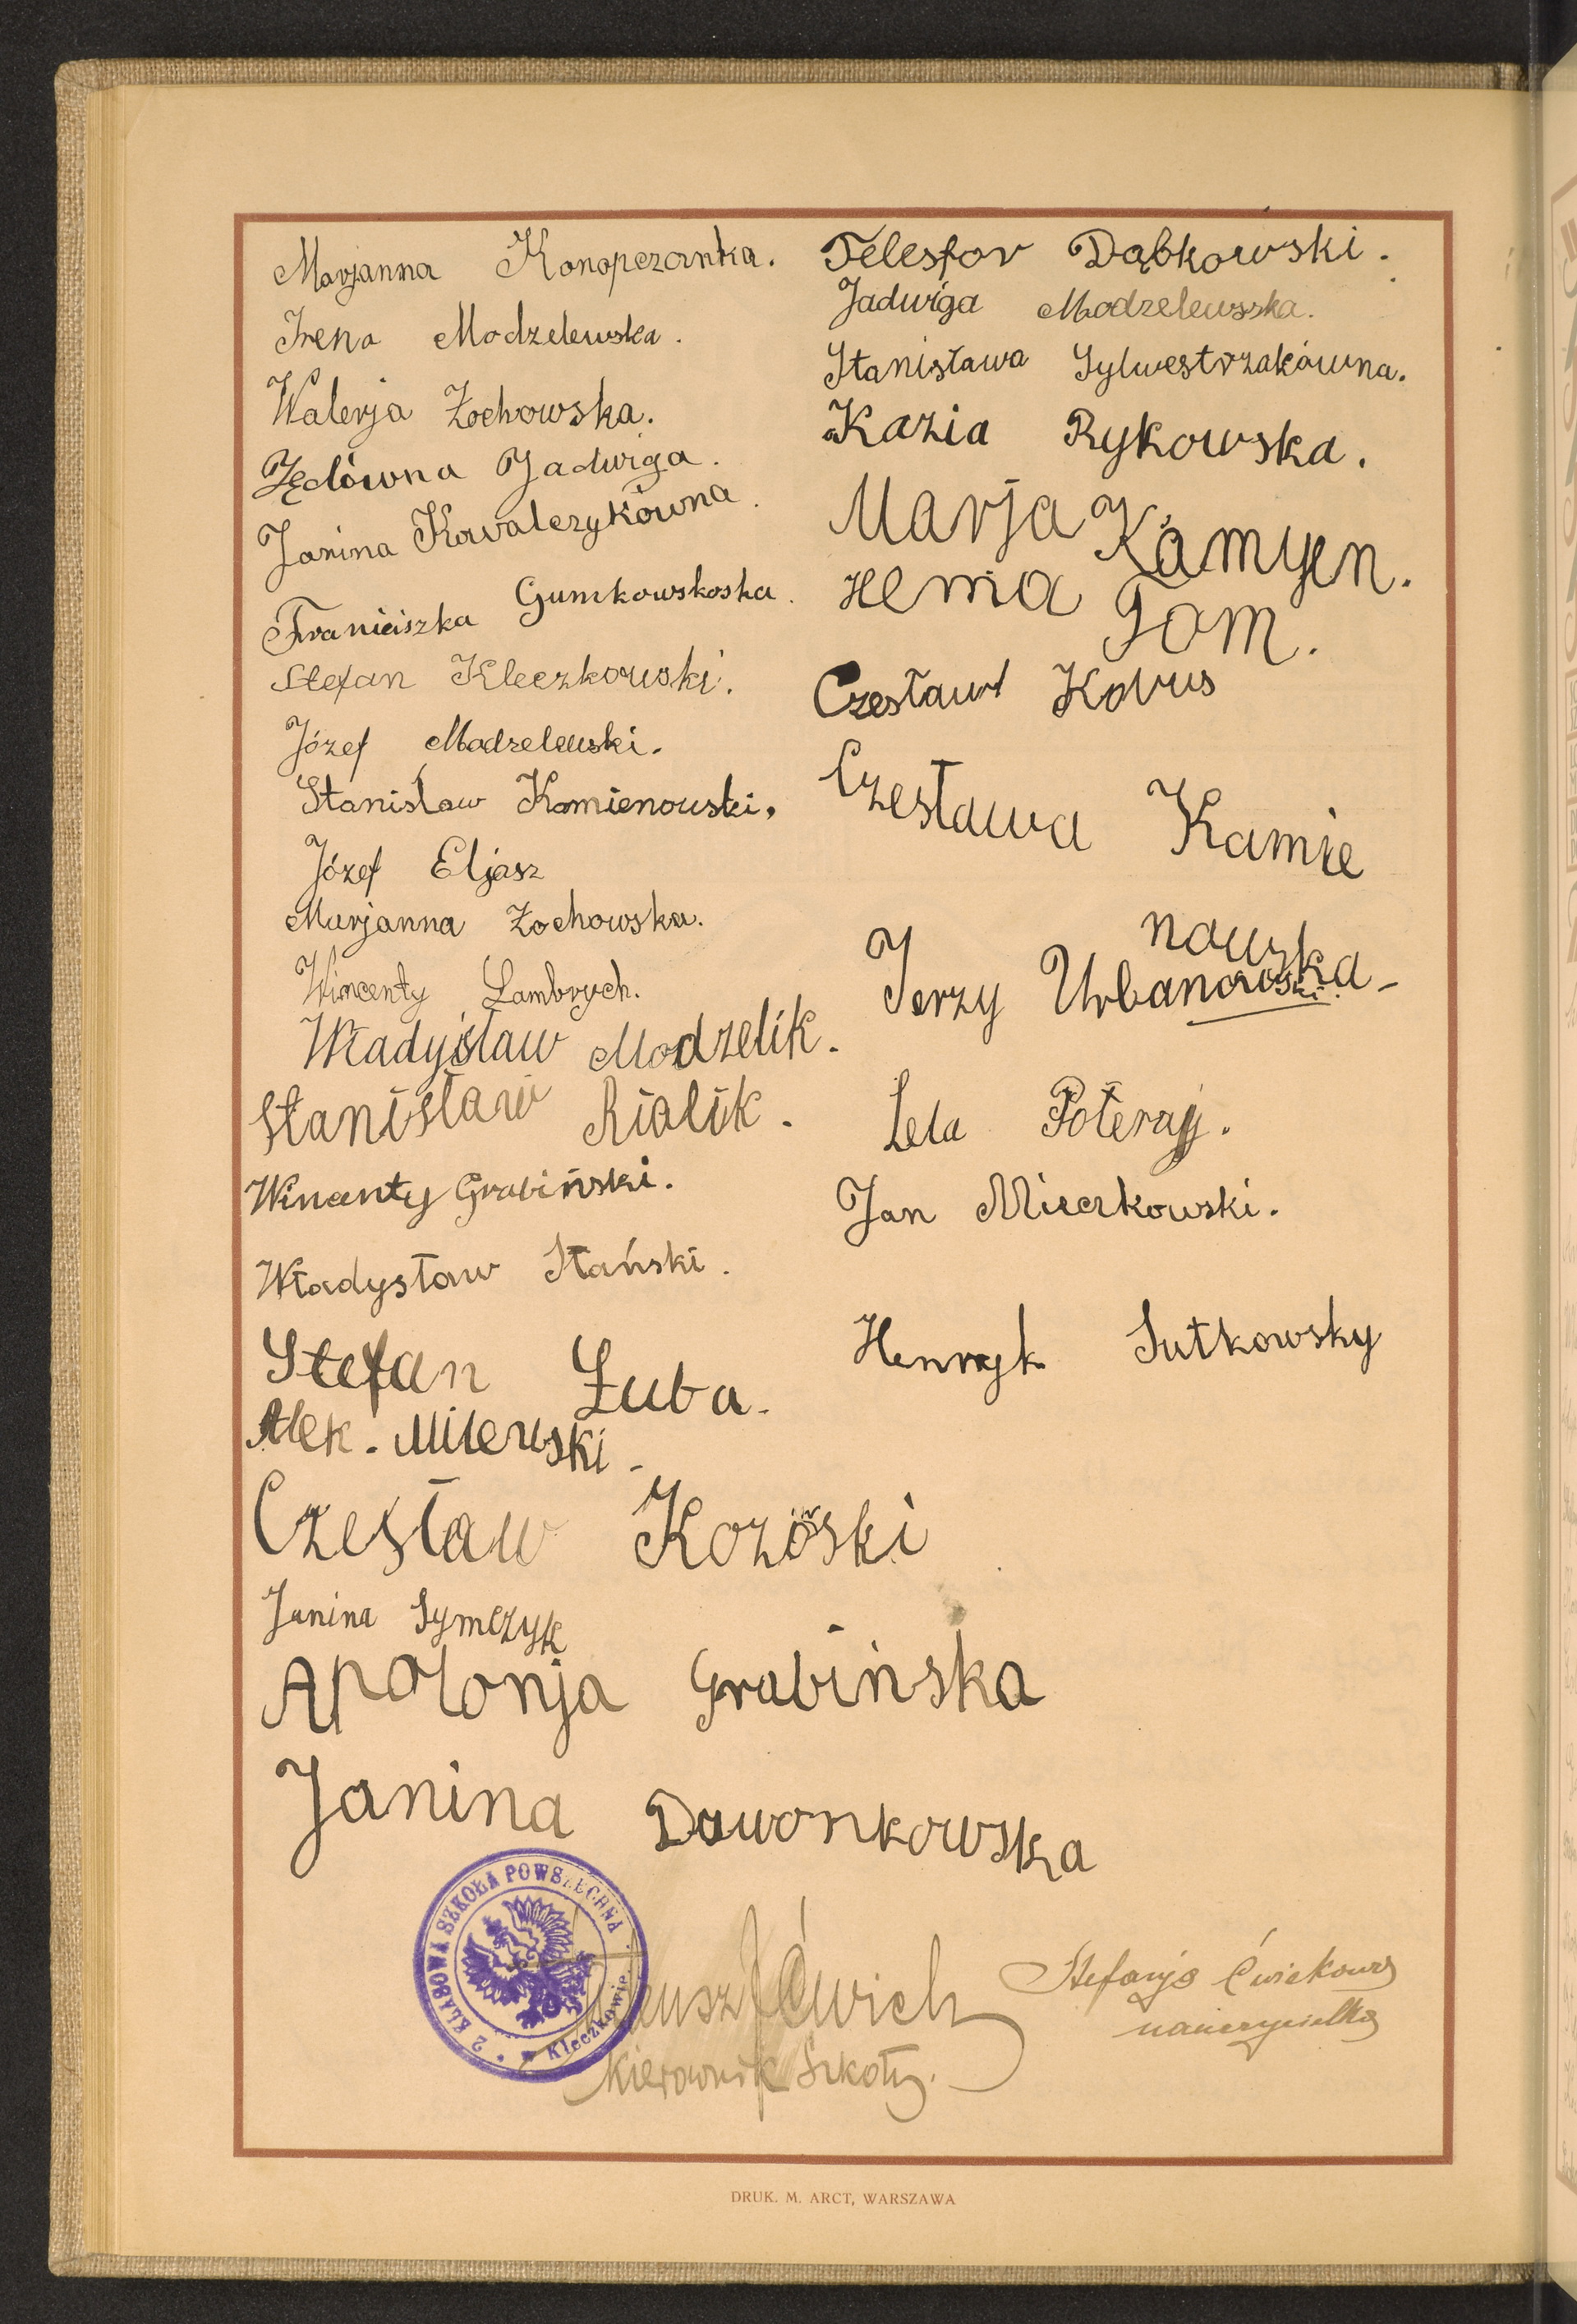 Marjanna Konopczanka.
Irena Modzelewska.
Walerja Żochowska.
Zędówna Jadwiga.
Janina Kowalczykówna.
Franiciszka Gumkowskoska.
Stefan Kleczkowski.
Józef Modzelewski.
Stanisław Kamienowski.
Józef Eljasz
Marjanna Żochowska.
Wincenty Lambrych.
Władyisław Modzelik.
Stanisław Rialik.
Wincenty Grabiński.
Władysław Stański.
Stefan Łuba.
Alek. Milewski.
Czesław Kozioski
Janina Symczyk
Apolonja Grabińska
Janina Dawonkowska
Telesfor Dąbkowski.
Jadwiga Modzelewsska.
Stanisława Sylwestrzakówna.
Kazia Rykowska.
Marja Kamyen.
Henia Tom.
Czesław Korus
Czesława Kamie
nowska
Jerzy Urbanowski.
Lela Poteraj.
Jan Mierkowski.
Henryk Sutkowsky
2 KLASOWA SZKOŁA POWSZECHNA
w Kleczkowie
Ćwiek
Kierownik Szkoły.
Stefanja Ćwiekowa
nauczycielka
DRUK. M. ARCT, WARSZAWA